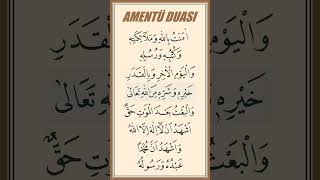 AMENTÜ DUASI
اٰمَنْتُ بِاللّٰهِ وَمَلٰٓئِكَتِهِ
وَكُتُبِهِ وَرُسُلِهِ
وَالْيَوْمِ الْاٰخِرِ وَبِالْقَدَرِ
خَيْرِهِ وَشَرِّهِ مِنَ اللّٰهِ تَعَالٰى
وَالْبَعْثُ بَعْدَ الْمَوْتِ حَقٌّ
اَشْهَدُ اَنْ لَٓا اِلٰهَ اِلَّا اللّٰهُ
وَاَشْهَدُ اَنَّ مُحَمَّدًا
عَبْدُهُ وَرَسُولُهُ